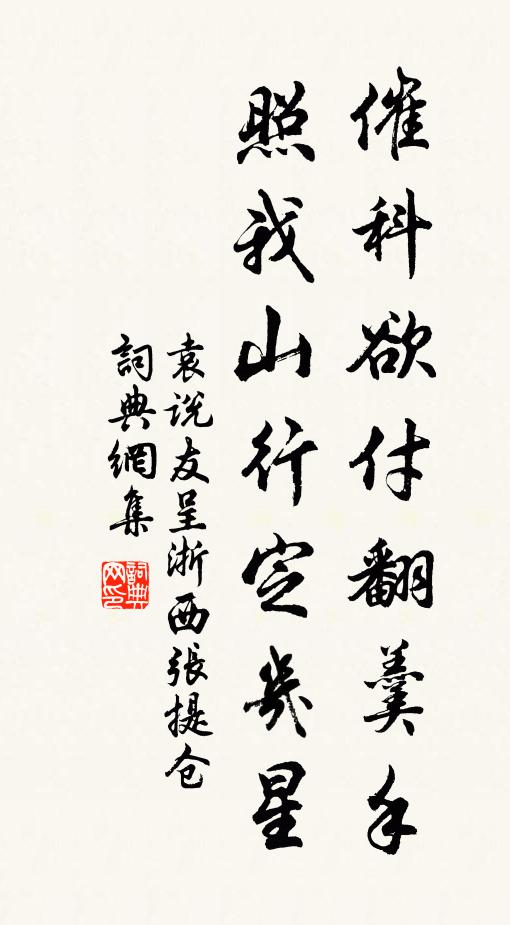 催科欲付翻羹手
照我山行定幾星
袁说友呈浙西張提仓
詞典網集
詞典
网印